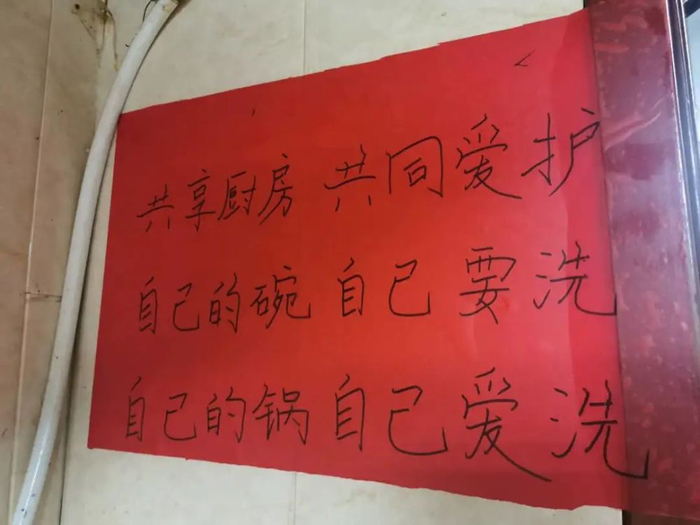 共享厨房 共同爱护
自己的碗 自己要洗
自己的锅 自己爱洗